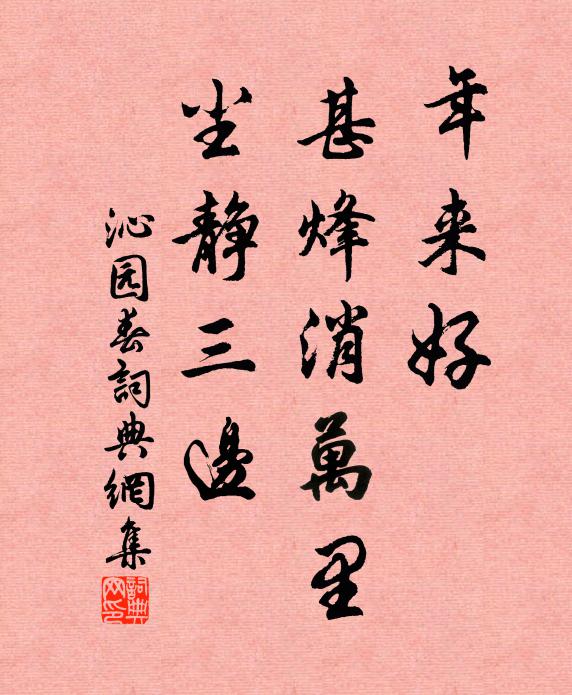 年来好
甚烽消萬里
尘静三邊
沁园春詞典網集
詞典
网印